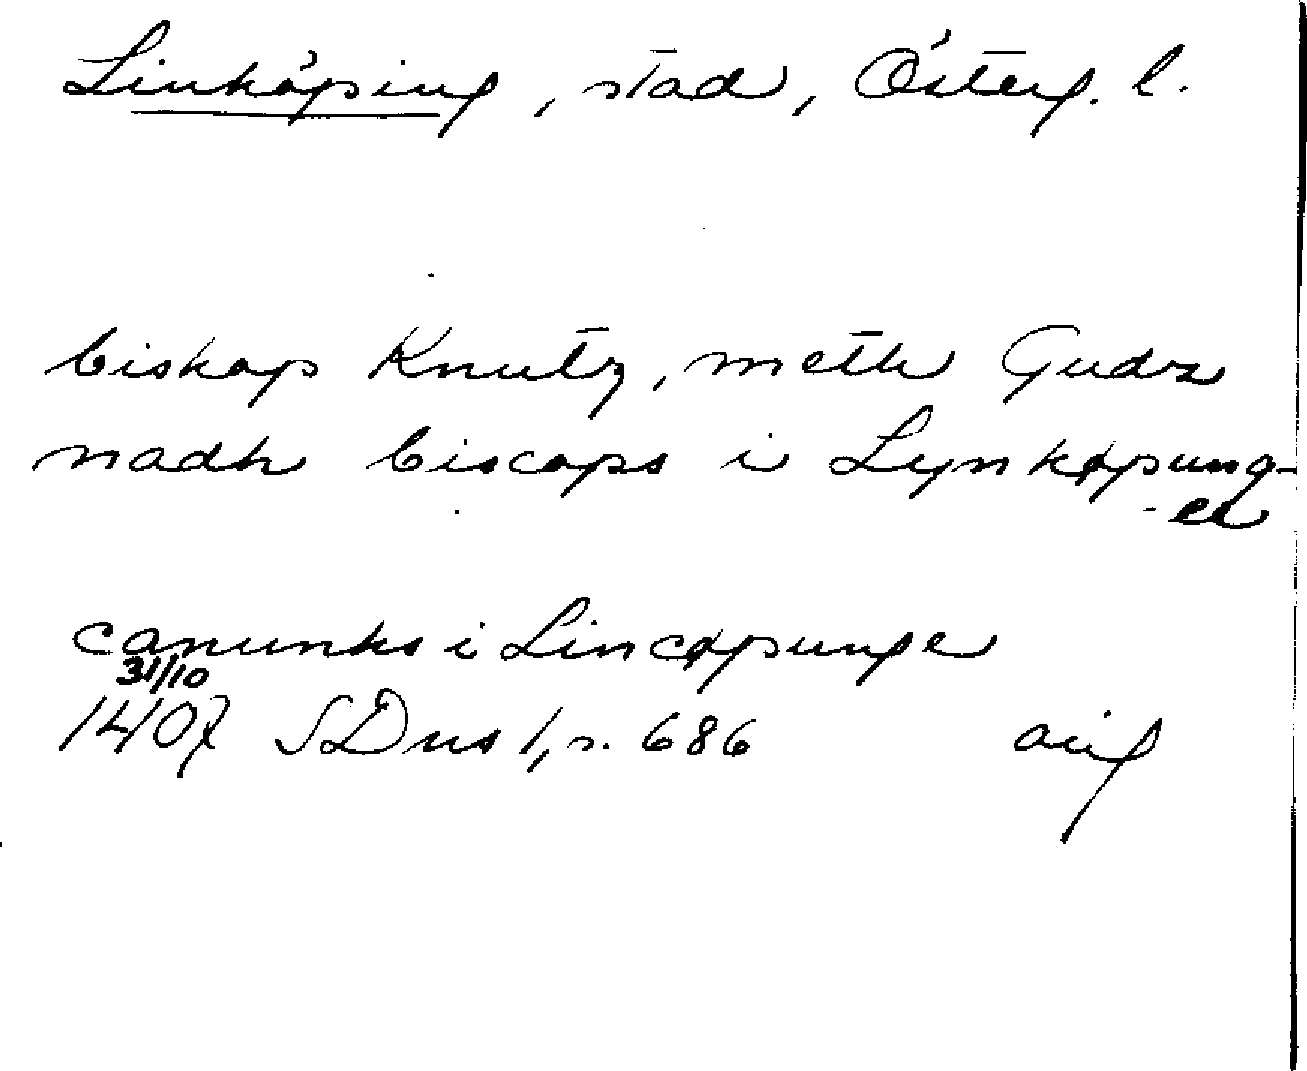 Linköping, stad, Österg. l.
biskop Knutz, meth Gudz
nadh biscops i Lynkøpung-
-er
canunks i Lincøpunge
31/10
1407 SDns 1, s. 686 avig